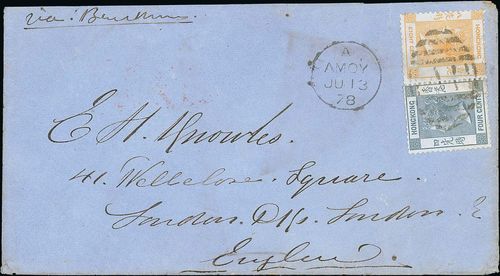 via: Brindisi
A
AMOY
JU 13
78
HONGKONG
HONGKONG
FOUR CENTS
E. H. Knowles.
41. Wellclose Square.
London Dks. London E
England.